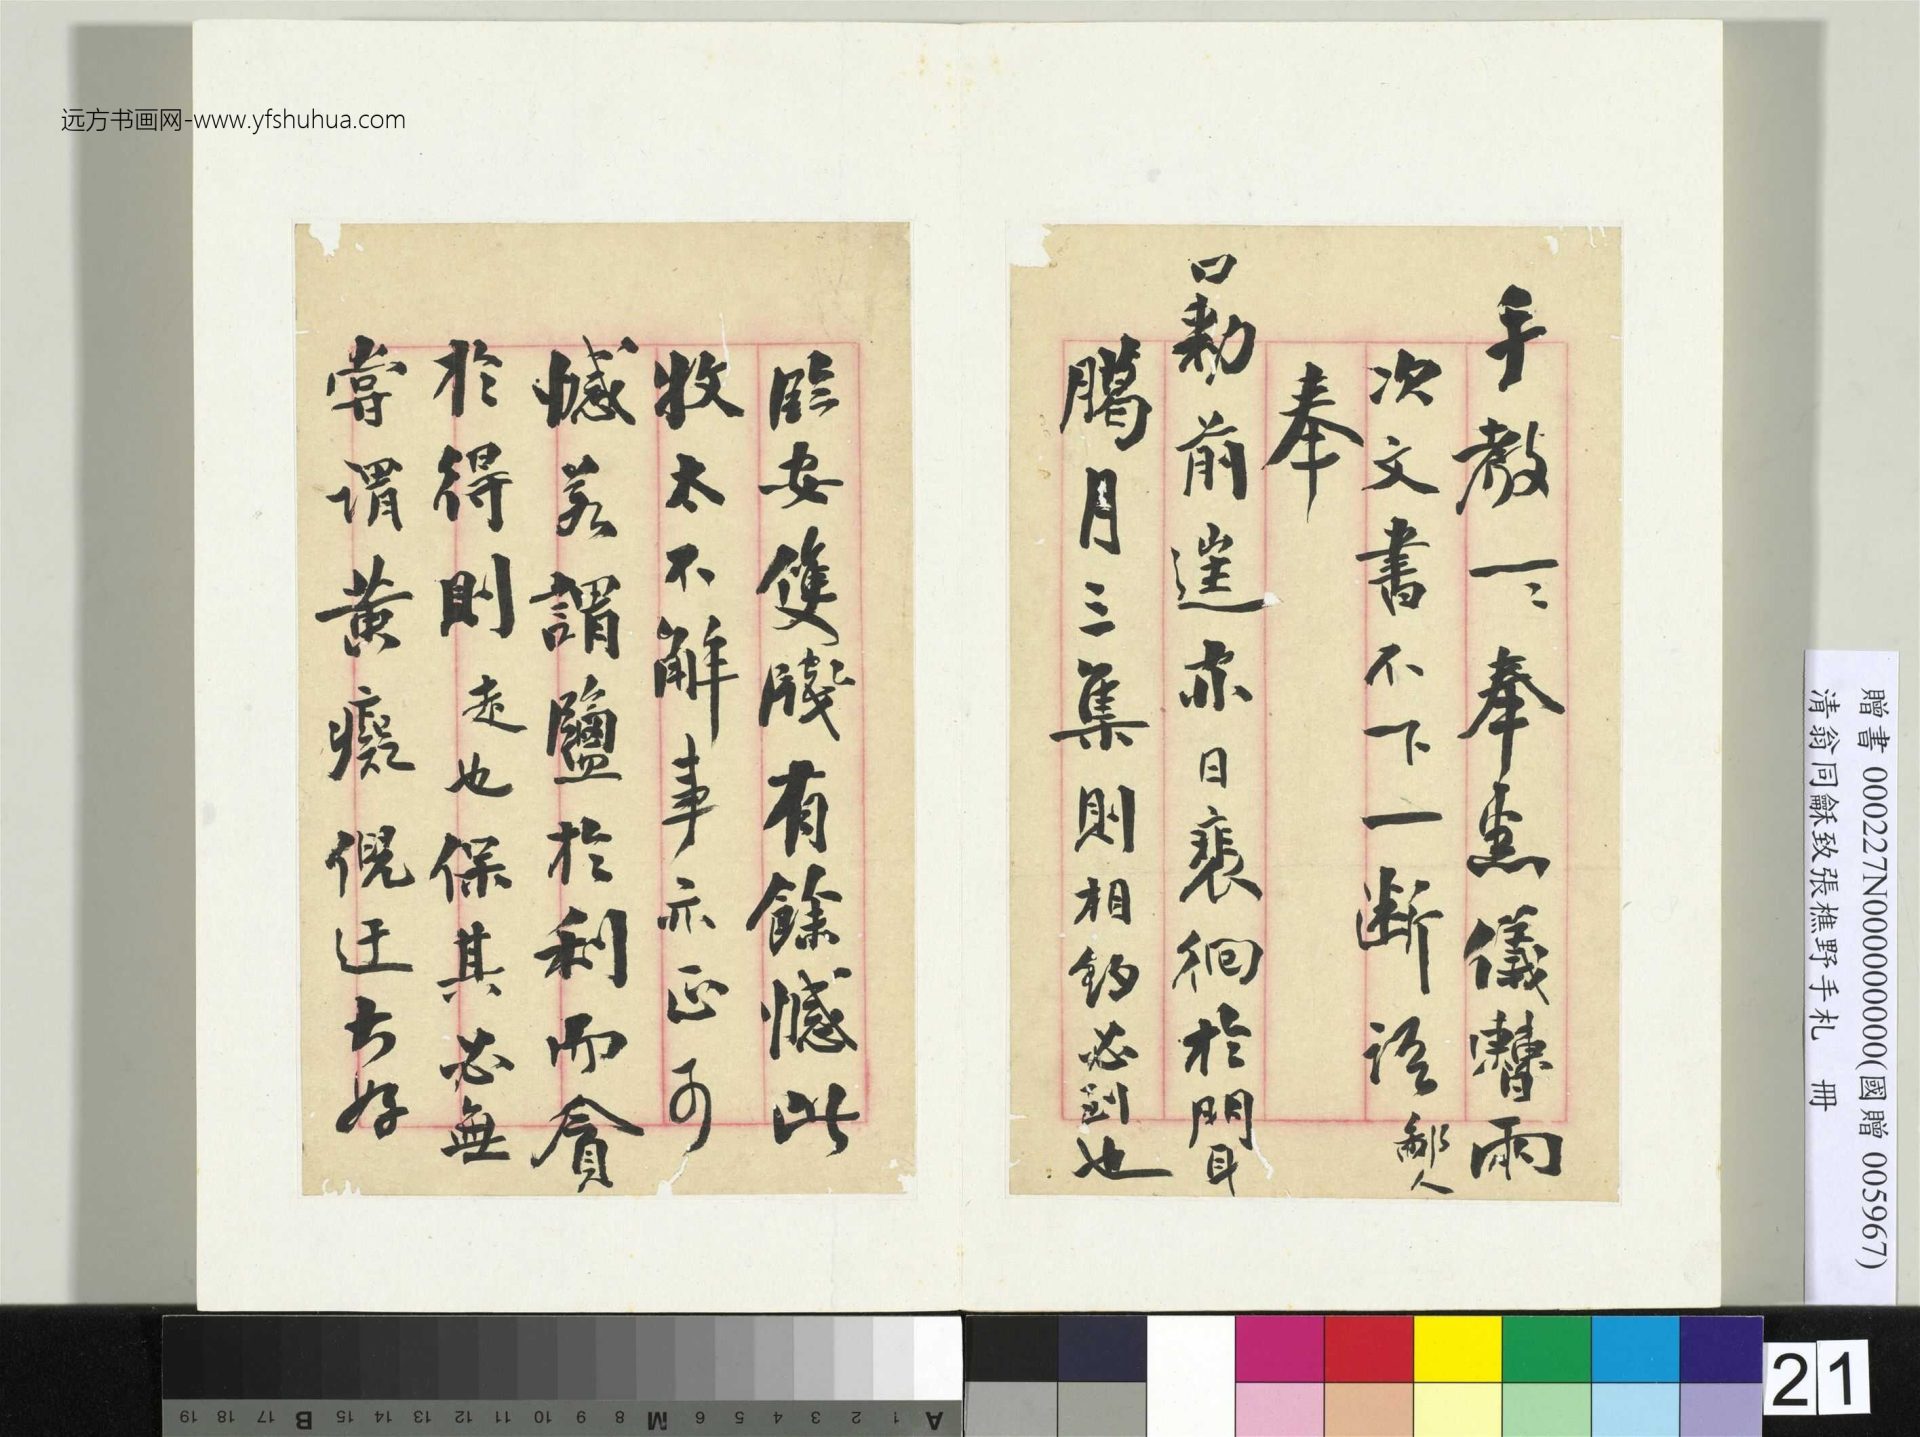 远方书画网-www.yfshuhua.com
手教一一奉悉儀轉兩
次文書不下一斷語鄙人
奉
口勅前進亦日裵徊於門耳
臈月三集則相鈞必到也
臨安雙牋有餘憾此
牧太不解事亦正可
憾若謂鹽於利而貪
於得則走也保其必無
嘗謂黃癡倪迂大好
贈書 000227N000000000(國贈 005967)
清翁同龢致張樵野手札 冊
21
A 1 2 3 4 5 6 M 8 9 10 11 12 13 14 15 B 17 18 19